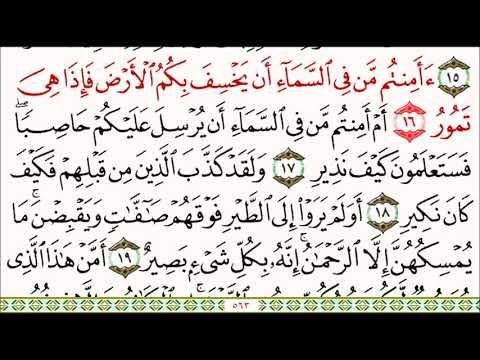 ١٥ ءَأَمِنتُم مَّن فِي السَّمَاءِ أَن يَخْسِفَ بِكُمُ الْأَرْضَ فَإِذَا هِيَ
تَمُورُ ١٦ أَمْ أَمِنتُم مَّن فِي السَّمَاءِ أَن يُرْسِلَ عَلَيْكُمْ حَاصِبًا ۖ
فَسَتَعْلَمُونَ كَيْفَ نَذِيرِ ١٧ وَلَقَدْ كَذَّبَ الَّذِينَ مِن قَبْلِهِمْ فَكَيْفَ
كَانَ نَكِيرِ ١٨ أَوَلَمْ يَرَوْا إِلَى الطَّيْرِ فَوْقَهُمْ صَافَّاتٍ وَيَقْبِضْنَ ۚ مَا
يُمْسِكُهُنَّ إِلَّا الرَّحْمَٰنُ ۚ إِنَّهُ بِكُلِّ شَيْءٍ بَصِيرٌ ١٩ أَمَّنْ هَٰذَا الَّذِي
٥٦٣